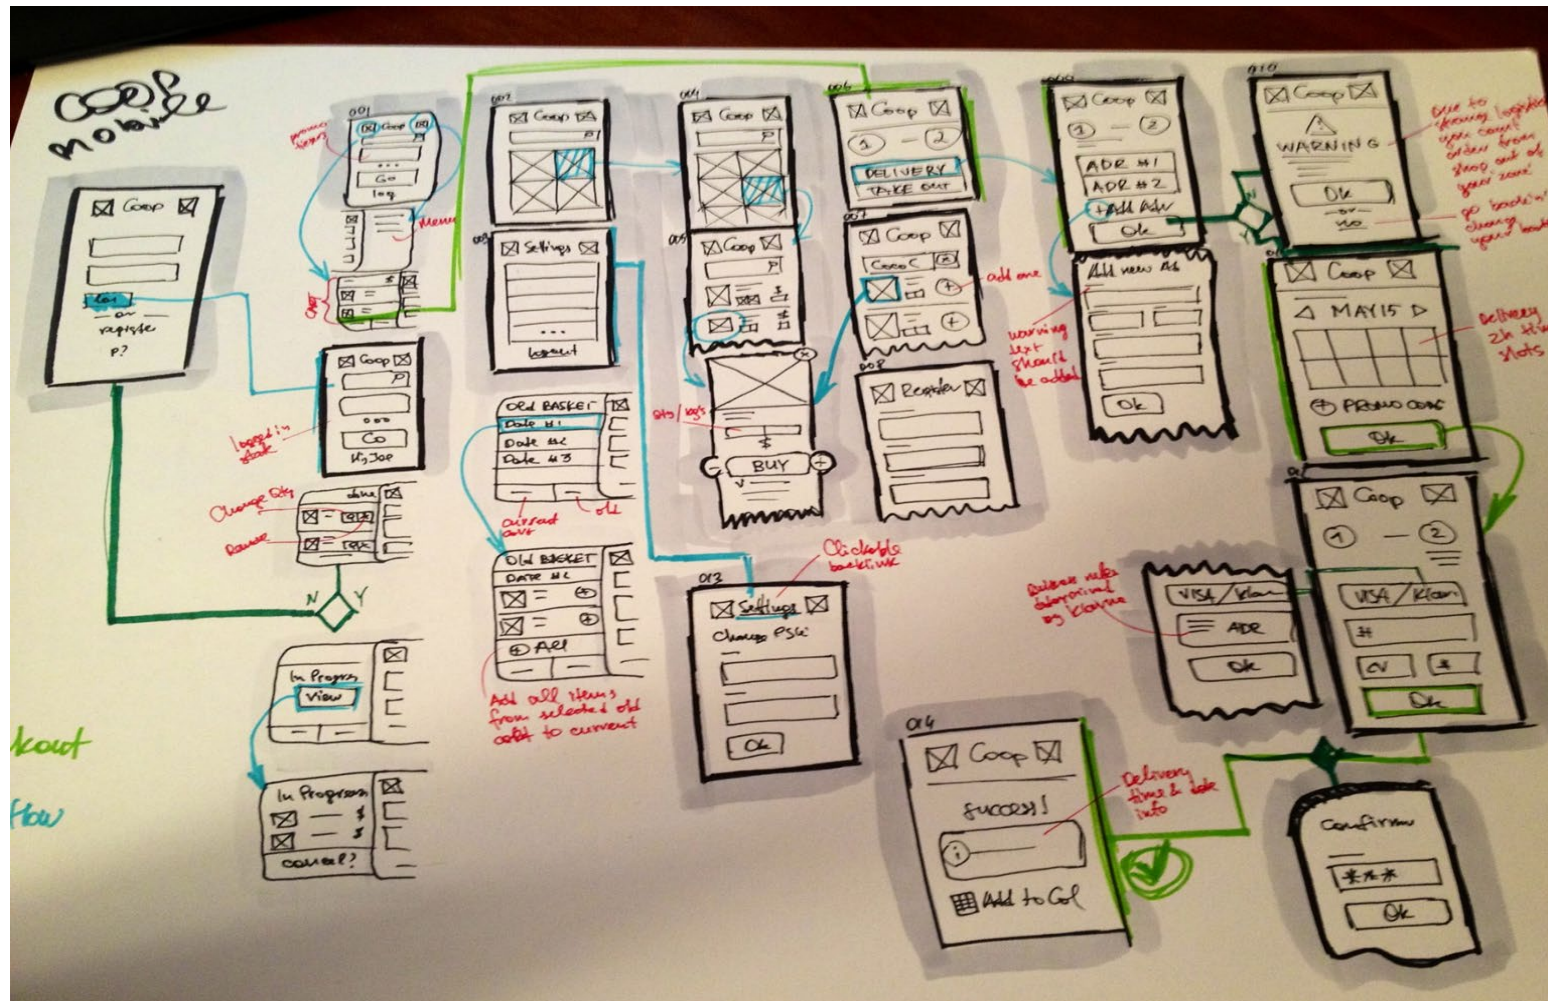 COOP
Mobile
Coop
or
register
P?
001
Coop
Go
log
menu
$
CART
Coop
Go
Hi, Joe
logged in
state
Change Qty
done
N
Y
In Progress
View
In Progress
$
$
cancel?
kout
flow
002
Coop
003
Settings
...
logout
OLD BASKET
Date #1
Date #2
Date #3
current
cart
old
OLD BASKET
DATE #2
+ All
Add all items
from selected old
cart to current
004
Coop
005
Coop
$
Qty/kg's
$
BUY
Clickable
backlink
013
Settings
Change
Ok
006
Coop
1 — 2
DELIVERY
TAKE OUT
007
Coop
add one
008
Register
Coop
1 — 2
ADR #1
ADR #2
+ Add Adr
Ok
Add new
warning
text
should
be added
Ok
010
Coop
WARNING
Ok
or
no
N
Due to
logistic
you can't
order from
shop out of
your zone
go back
change
your
Coop
MAY 15
+ PROMO CODE
Ok
Delivery
2h time
slots
Coop
1 — 2
VISA/Klar
#
CV
Ok
VISA/Klar
ADR
Ok
by Klarna
014
Coop
success!
i
Add to Cal
Delivery
time & date
info
Confirm
***
Ok